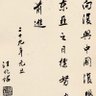 向復興中國復興
東亞之目標努力
前進
二十九年元旦
汪兆銘